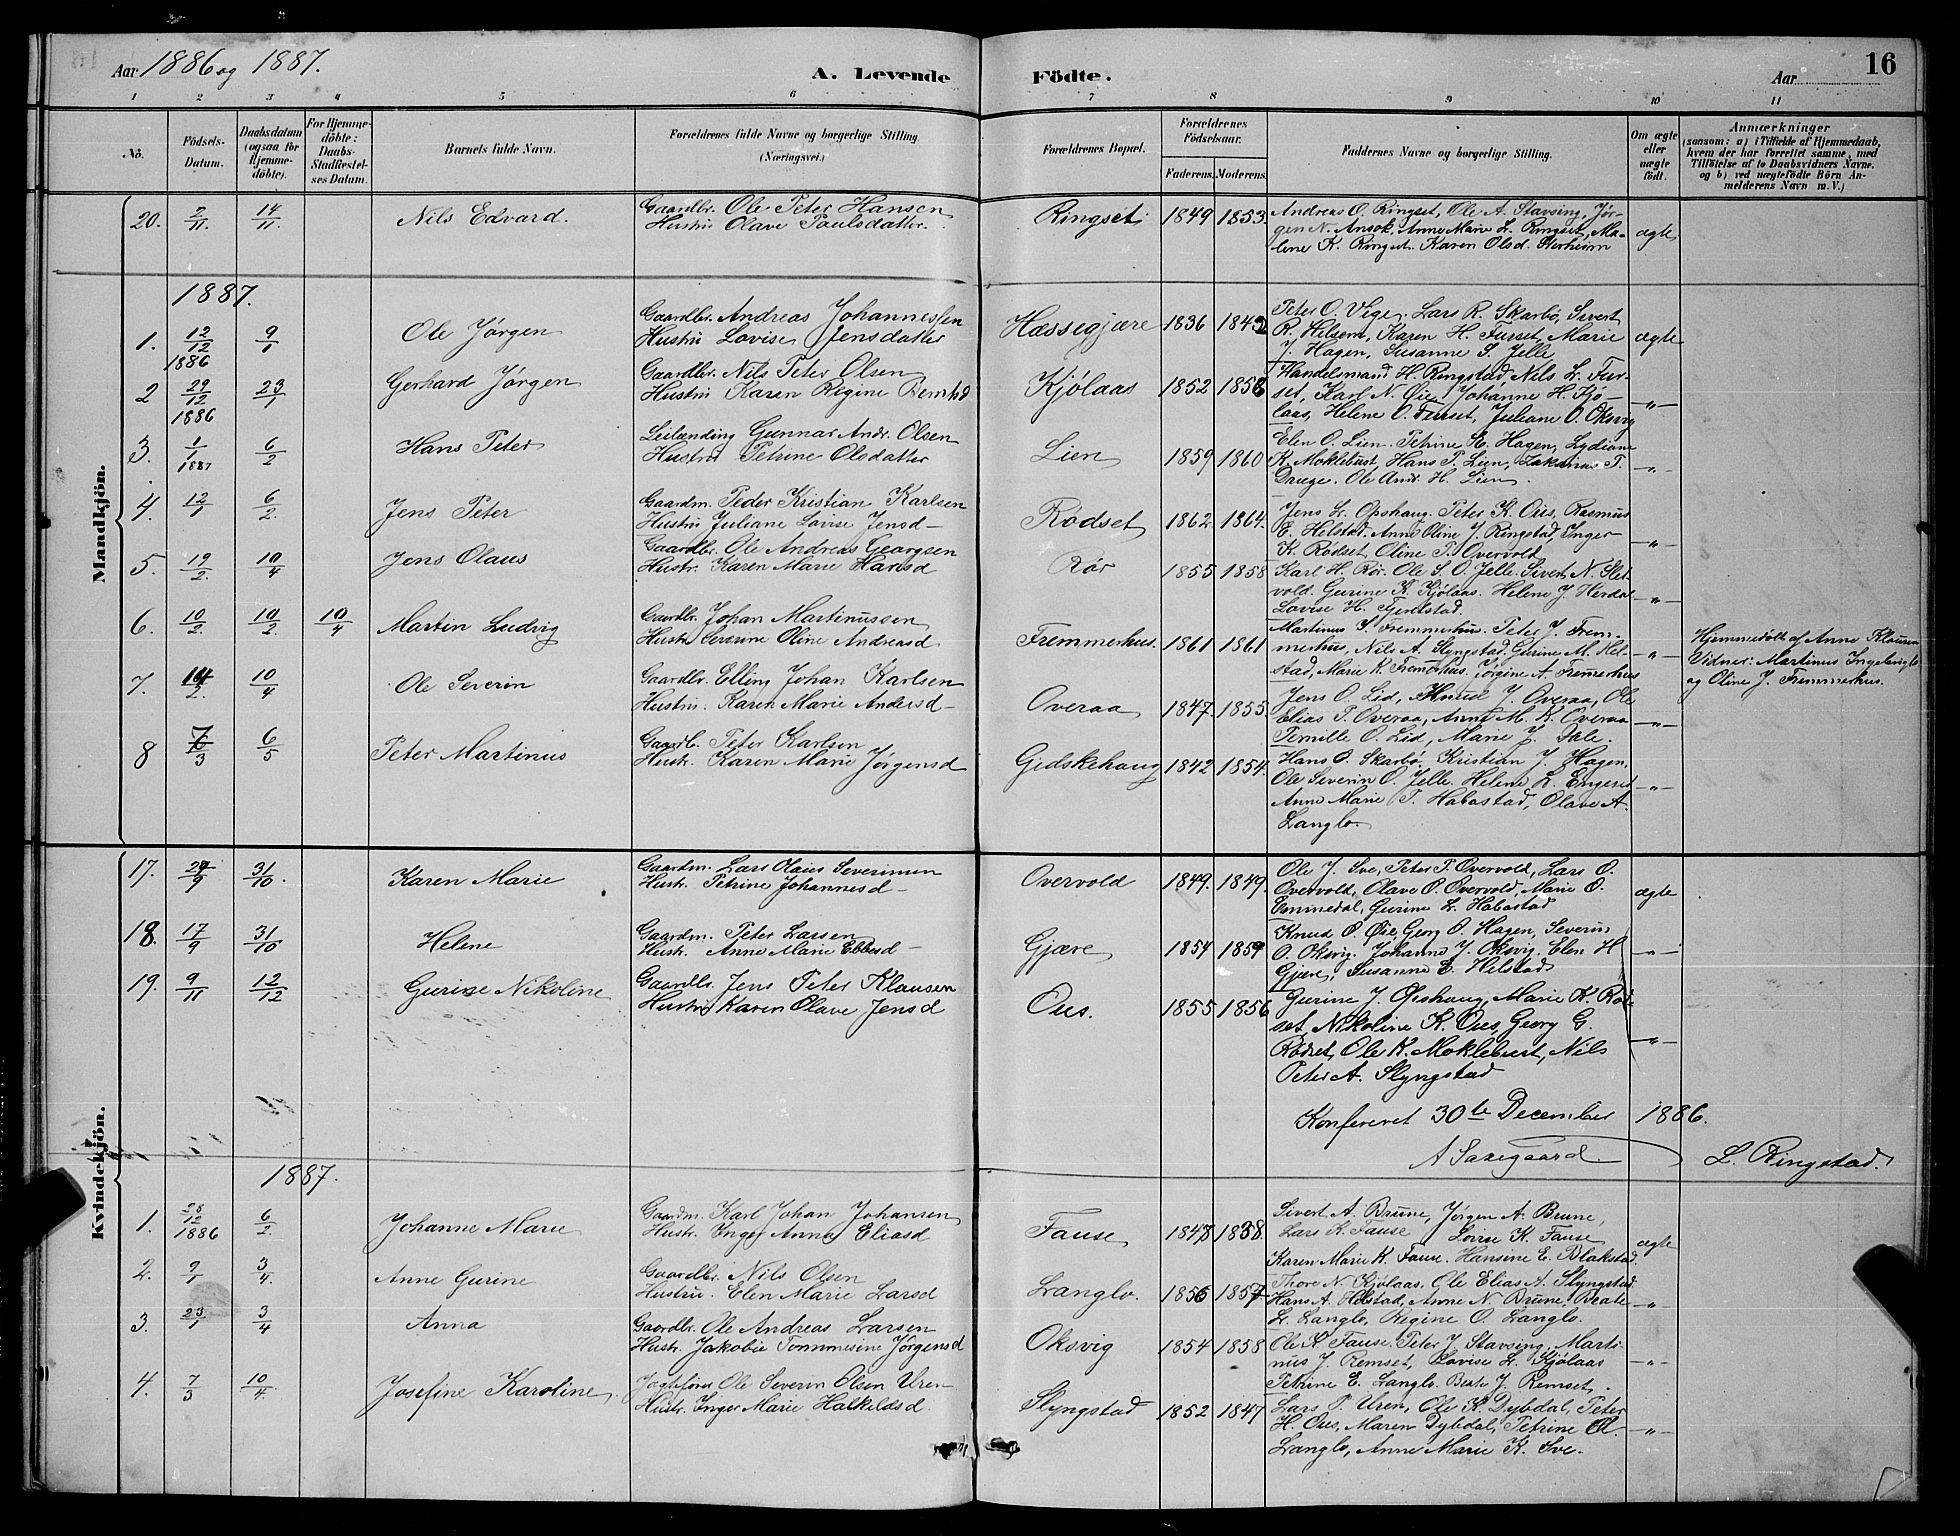 Aar 1886 og 1887.
A. Levende Födte.
Aar
16
1 2 3 4 5 6 7 8 9 10 11
No.
Födsels-Datum.
Daabsdatum (ogsaa for Hjemme-döbte).
For Hjemme-döbte: Daabs-Stadfæstel-ses Datum.
Barnets fulde Navn.
Forældrenes fulde Navne og borgerlige Stilling. (Næringsvei.)
Forældrenes Bopæl.
Forældrenes Födselsaar.
Faderens. Moderens.
Faddernes Navne og borgerlige Stilling.
Om ægte eller uægte födt.
Anmærkninger
(saasom: a) i Tilfælde af Hjemmedaab, hvem der har forrettet samme, med Tilföielse af to Daabsvidners Navne, og b) ved uægtefödte Börn An-melderens Navn m. V.)
Mandkjön.
20. 2/11 14/11 Nils Edvard. Gaardbr. Ole Peter Hansen
Hustru Olave Paulsdatter.
Ringset 1849 1853. Andreas O. Ringset, Ole A. Stavsing, Jør-
gen N. Ansok, Anne Marie L. Ringset, Ma-
lene K. Ringset. Karen Olsd. Nerheim
ægte
1887.
1. 12/12 1886 9/1 Ole Jørgen Gaardbr. Andreas Johannessen
Hustru Lovise Jensdatter
Hæssegjære 1836 1842 Peter O. Vige. Lars R. Skarbø, Sivert
R. Holsem, Karen H. Furset, Marie
J. Hagen, Susanne S. Jelle
ægte
2 29/12 1886 23/1 Gerhard Jørgen Gaardbr. Nils Peter Olsen
Hustru Karen Regine Berntsd
Kjølaas 1852 1856 Handelsmand H. Ringstad, Nils L. Fur-
set, Karl N. Øie, Johanne H. Kjø-
laas, Helene O. Furset, Juliane O. Oksvig
-"-
3. 1/1 1887 6/2 Hans Peter Leilænding Gunnar Andr. Olsen
Hustru Petrine Olsdatter
Lien 1859 1860 Elen O. Lien. Petrine K. Hagen, Lydiane
K. Moklebust, Hans P. Lien, Zakarias P.
Dauge. Ole Andr. H. Lien.
-"-
4. 12/1 6/2. Jens Peter Gaardm. Peder Kristian Karlsen
Hustru Juliane Lovise Jensd-
Rødset 1862. 1864. Jens L. Opshaug. Peter K. Ous, Rasmus
E. Helstad. Anne Oline J. Ringstad, Inger
K. Rødset, Oline P. Overvold
-"-
5. 19/2. 10/4 Jens Olaus Gaardbr. Ole Andreas Georgsen
Hustr. Karen Marie Hansd
Rør 1855 1858 Karl H. Rør. Ole S. O. Jelle. Sivert N. Slet-
vold. Gurine K. Kjølaas. Helene J. Herdal
Lovise H. Gjerdstad.
-"-
6. 10/2. 10/2. 10/4 Martin Ludvig Gaardbr. Johan Martinussen
Hustr. Severine Oline Andreasd
Fremmerhus. 1861 1861 Martinus I. Fremmerhus. Peter J. Frem-
merhus, Nils A. Slyngstad. Gurine M. Hel-
stad, Marie K. Fremerhus. Jørgine A. Fremerhus
-"- Hjemmedøbt af Anne Klausen
Vidner: Martinus Ingebrigts
og Oline J. Fremmerhus.
7. 14/2 10/4 Ole Severin Gaardbr. Elling Johan Karlsen
Hustru. Karen Marie Andersd-
Overaa 1847. 1855. Jens O. Lid, Knud J. Overaa, Ole
Elias P. Overaa, Anne M. K. Overaa
Pernille O. Lid, Marie J. Sæle.
-"-
8 7/3 6/5 Peter Martinus Gaardb. Peter Karlsen
Hustr. Karen Marie Jørgensd
Gidskehaug 1842 1854. Hans O. Skarbø, Kristian J. Hagen,
Ole Severin O. Jelle. Helene L. Engeset
Anne Marie P. Habostad, Olave A.
Langlo.
-"-
Kvindekjön.
17. 29/9 31/10. Karen Marie Gaardm. Lars Olaus Severinsen
Hustr. Petrine Johannesd-
Overvold 1849. 1849. Ole J. Sve, Peter P. Overvold, Lars O.
Overvold, Olave O. Overvold, Marie O.
Emmedal, Gurine L. Habostad
ægte
18. 17/9 31/10 Helene Gaardm. Peter Larsen
Hustr. Anne Marie Ebbesd-
Gjære 1854 1859 Knud O. Øie, Georg O. Hagen, Severin
O. Oksvig. Johanne J. Oksvig. Elen H.
Gjære, Susanne E. Helstad
-"-
19. 9/11 12/12 Gurine Nikoline Gaardbr. Jens Peter Klausen
Hustru Karen Olave Jensd
Ous. 1855 1856 Gurine J. Opshaug, Marie K. Rød-
set, Nikoline K. Ous, Georg G.
Rødset, Ole K. Moklebust, Nils
Peter A. Slyngstad
-"-
Konfereret 30te December 1886.
A Saxegaard. L. Ringstad.
1887.
1. 28/12 1886 6/2. Johanne Marie Gaardm. Karl Johan Johansen
Hustr. Inger Anna Eliasd
Fause 1848 1838. Sivert A. Brune, Jørgen A. Brune,
Lars K. Fause Lovise K. Fause
Karen Marie K. Fause. Hansine E. Blakstad.
ægte
2. 9/1 3/4. Anne Gurine Gaardbr. Nils Olsen
Hustru. Elen Marie Larsd
Langlo. 1856 1857 Thore N. Kjølaas. Ole Elias A. Slyngstad
Hans A. Helstad, Anne N Brune, Beate
L. Langlo, Regine O. Langlo.
-"-
3. 23/1 3/4 Anna Gaardbr. Ole Andreas Larsen
Hustr. Jakobie Tommesine Jørgensd
Oksvig 1854 1858 Ole K. Fause. Peter J. Stavsing, Marti-
nus J. Remset, Lovise L. Kjølaas
Petrine E. Langlo. Beate J. Remset.
-"-
4. 7/3 10/4. Josefine Karoline Jægtefører Ole Severin Olsen Uren
Hustr. Inger Marie Halkildsd.
Slyngstad 1852 1847 Lars P. Uren, Ole K. Dybdal, Peter
H. Ous, Maren Dybdal, Petrine O.
Langlo, Anne Marie K. Sve.
-"-